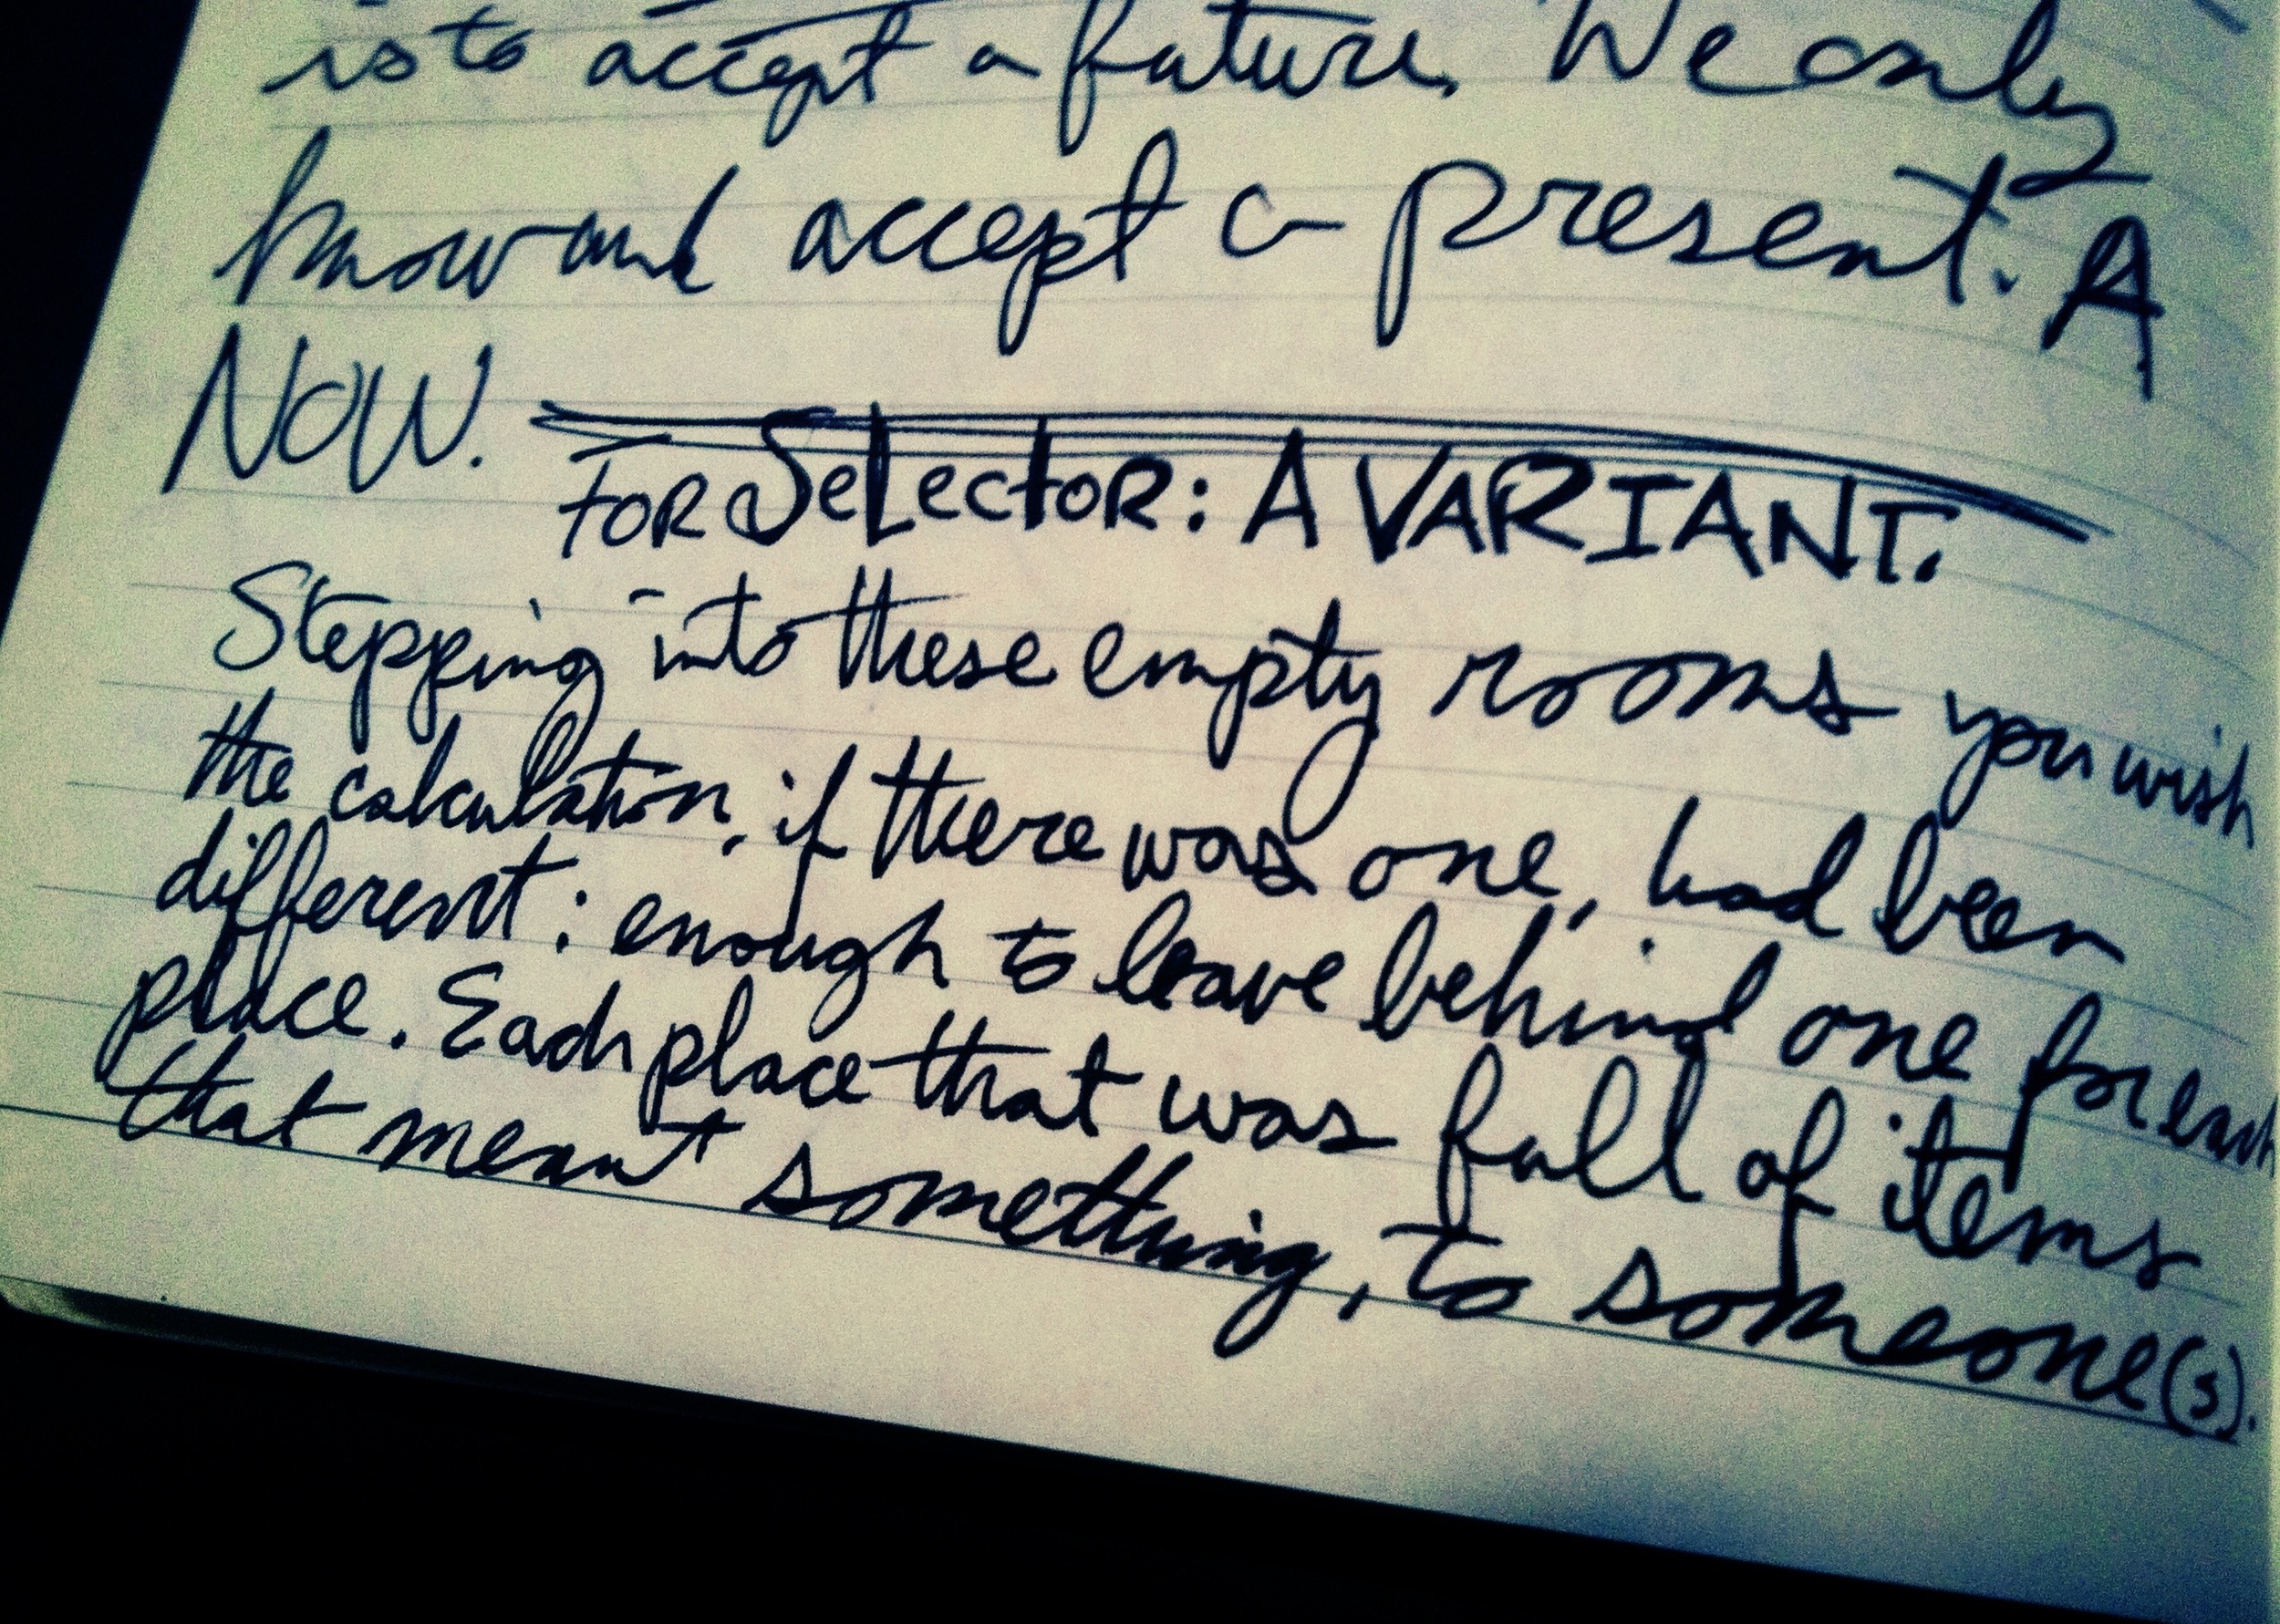 is to accept a future. We only
know and accept a present. A
NOW.
FOR SELECTOR: A VARIANT.
Stepping into these empty rooms you wish
the calculation, if there was one, had been
different: enough to leave behind one for each
place. Each place that was full of items
that meant something, to someone(s).